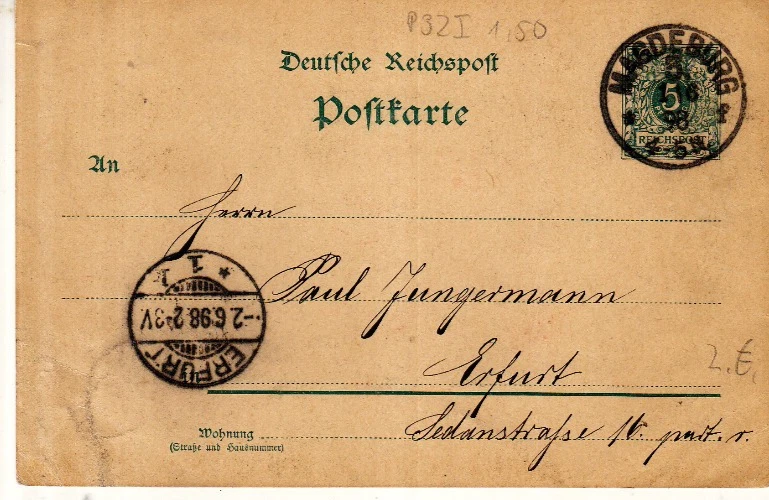 P32I 1,50
Deutsche Reichspost
Postkarte
MAGDEBURG
5
98
f
REICHSPOST
An
Herrn
Paul Jungermann
Erfurt
Sedanstraße 16. part. r.
Wohnung
(Straße und Hausnummer)
* 1
-2.6.98.2-3V
ERFURT